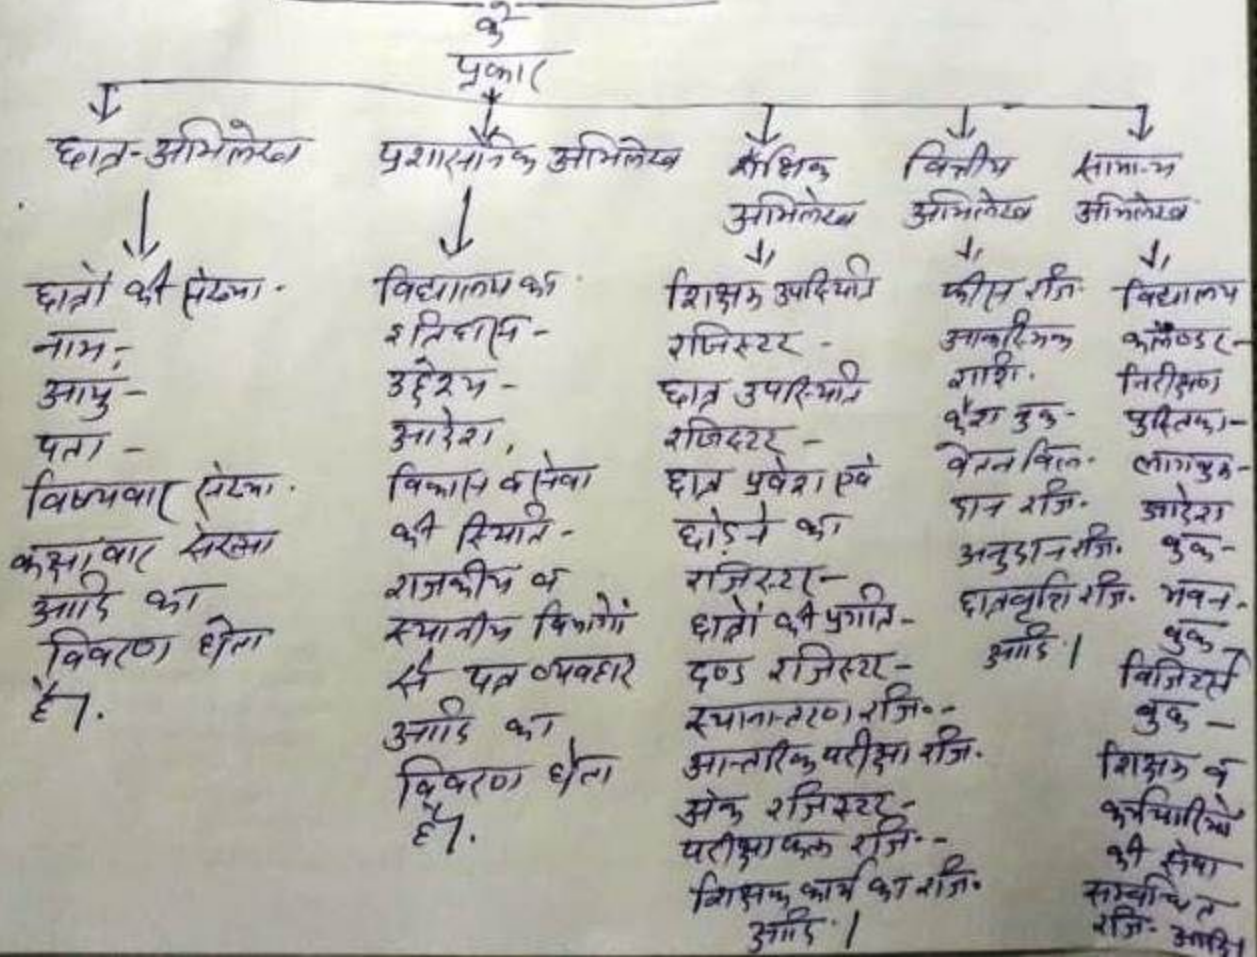 के
प्रकार
छात्र-अभिलेख
छात्रों की संख्या.
नाम,-
आयु-
पता -
विषयवार संख्या.
कक्षावार संख्या
आदि का
विवरण होता
है।.
प्रशासनिक अभिलेख
विद्यालय का
इतिहास-
उद्देश्य-
आदेश,
विकास व सेवा
की स्थिति-
राजकीय व
स्थानीय विभागों
से पत्र व्यवहार
आदि का
विवरण होता
है।.
शैक्षिक
अभिलेख
शिक्षक उपस्थिति
रजिस्टर -
छात्र उपस्थिति
रजिस्टर -
छात्र प्रवेश एवं
छोड़ने का
रजिस्टर-
छात्रों की प्रगति-
दण्ड रजिस्टर-
स्थानान्तरण रजि.-
आन्तरिक परीक्षा रजि.
अंक रजिस्टर-
परीक्षाफल रजि.-
शिक्षक कार्य का रजि.
आदि।
वित्तीय
अभिलेख
फीस रजि.
आकस्मिक
राशि.
कैश बुक-
वेतन बिल.
दान रजि.
अनुदान रजि.
छात्रवृत्ति रजि.
आदि।
सामान्य
अभिलेख
विद्यालय
कलैण्डर-
निरीक्षण
पुस्तिका-
लागबुक-
आदेश
बुक-
भवन-
बुक
विजिटर्स
बुक-
शिक्षक व
कर्मचारियों
की सेवा
सम्बन्धित
रजि. आदि।